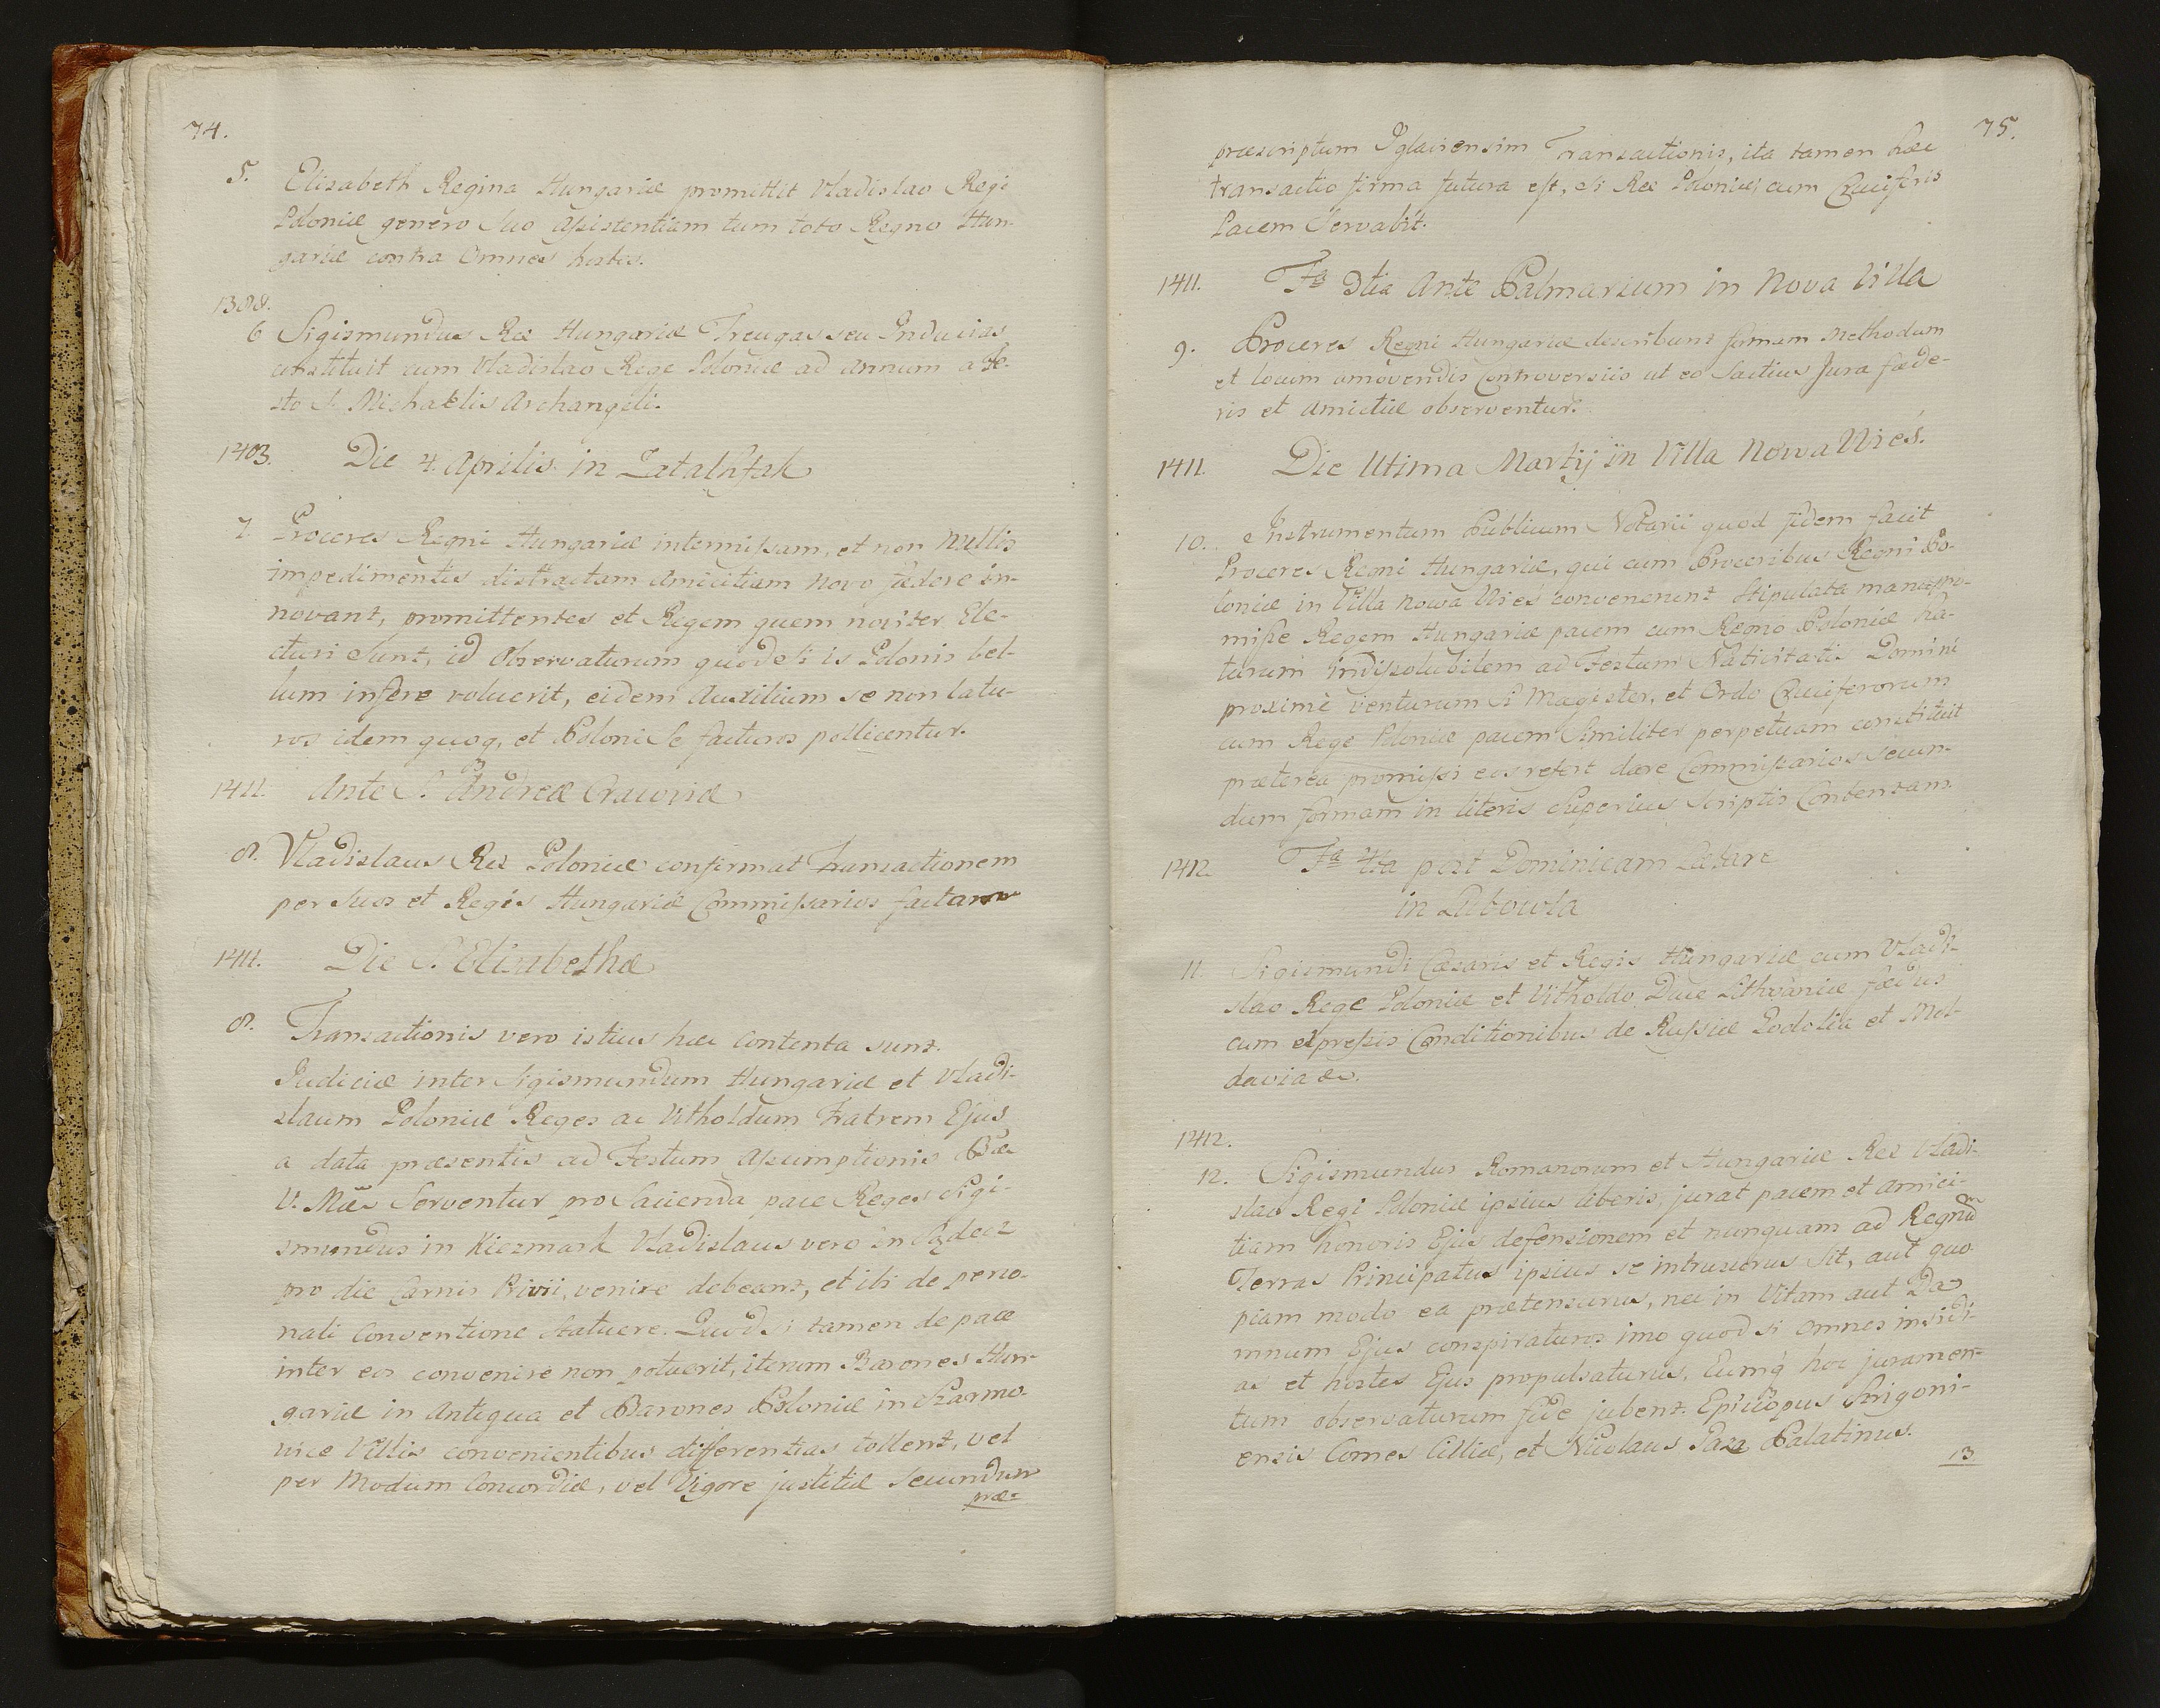 74.
5. Elisabeth Regina Hungariæ promittit Vladislao Regi
Poloniæ genero Suo Assistentiam tum toto Regno Hun-
gariæ contra Omnes hostes.
1388.
6 Sigismundus Rex Hungariæ Treugas seu Inducias
constituit cum Vladislao Rege Poloniæ ad Annum a Fe-
sto S. Michaelis Archangeli.
1403. Die 4. Aprilis in
7. Proceres Regni Hungariæ intermissam, et non nullis
impedimentis distractam Amicitiam novo fœdere in-
novant, promittentes et Regem quem noviter Ele-
cturi Sunt, id Observaturum quod si is Polonis bel-
lum inferre voluerit, eidem Auxilium se non latu-
ros idem quoq, et Poloni Se facturos pollicentur.
1411. Ante S. Andreæ Cracoviæ
8. Vladislaus Rex Poloniæ confirmat Transactionem
per Suos et Regis Hungariæ Commissarios factam
1411. Die S. Elisabethæ
8. Transactionis vero istius hæc Contenta sunt.
Induciæ inter Sigismundum Hungariæ et Vladi-
slaum Poloniæ Reges ac Vitholdum Fratrem Ejus
a data præsentis ad Festum Assumptionis Bæ
V. Mæ Serventur pro Sacienda pace Reges Sigi-
smundus in Kiezmark Vladislaus vero in Sądecz
pro die Carnis Privii, venire debeant, et ibi de perso-
nali Conventione Statuere. Quod si tamen de pace
inter eos convenire non potuerit, iterum Barones Hun-
gariæ in Antiqua et Barones Poloniæ in Szarmo-
vice Villis convenientibus differentias tollent, vel
per Modum Concordiæ, vel Vigore justitiæ Secundum
præ=
75.
præscriptum Iglaviensim Transactionis, ita tamen hæc
transactio firma futura est, si Rex Poloniæ, cum Cruciferis
Pacem Servabit.
1411. Fa 3tia Ante Palmarium in Nova Villa
9. Proceres Regni Hungariæ describunt formam Methodum
et locum amovendis Controversiis ut eo Sactius Jura fæde-
ris et Amictiæ observentur.
1411. Die Utima Martij in Villa Nowa Wieś.
10. Instrumentum Publicum Notarii quod fidem facit
Proceres Regni Hungariæ, qui cum Proceribus Regni Po-
loniæ in Villa Nowa Wies convenerunt Stipulata manu pro-
misse Regem Hungariæ pacem cum Regno Poloniæ ha-
turum indissolubilem ad Festum Nativitatis Domini
proximè venturum Si Magister, et Ordo Cruciferorum
cum Rege Poloniæ pacem Similiter perpetuam constituit
præterea promissi eos refert dare Commissarios Secun-
dum formam in literis Superius Scriptis Contentam.
1412. Fa 4ta post Dominicam Lætare
in Lubowla
11. Sigismundi Cæsaris et Regis Hungariæ cum Vladi-
slao Rege Poloniæ et Vitholdo Duce Lithvaniæ fœdus
cum expressis Conditionibus de Russiæ Podolia et Mol-
davia &c.
1412.
12. Sigismundus Romanorum et Hungariæ Rex Vladi-
slao Regi Poloniæ ipsius liberis, jurat pacem et Amici-
tiam honoris Ejus defensionem et nunquam ad Regnũ
Terras Principatus ipsius se intrusurus Sit, aut quo-
piam modo ea prætensurus, nec in Vitam aut Da-
mnum Ejus conspiraturos imo quod si omnes insidi-
as et hostes Ejus propulsaturus, Eumq́ hoc juramen-
tum observaturum fide jubent. Episcopus Strigoni-
ensis Comes Cilliæ, et Nicolaus Gara Palatinus.
13